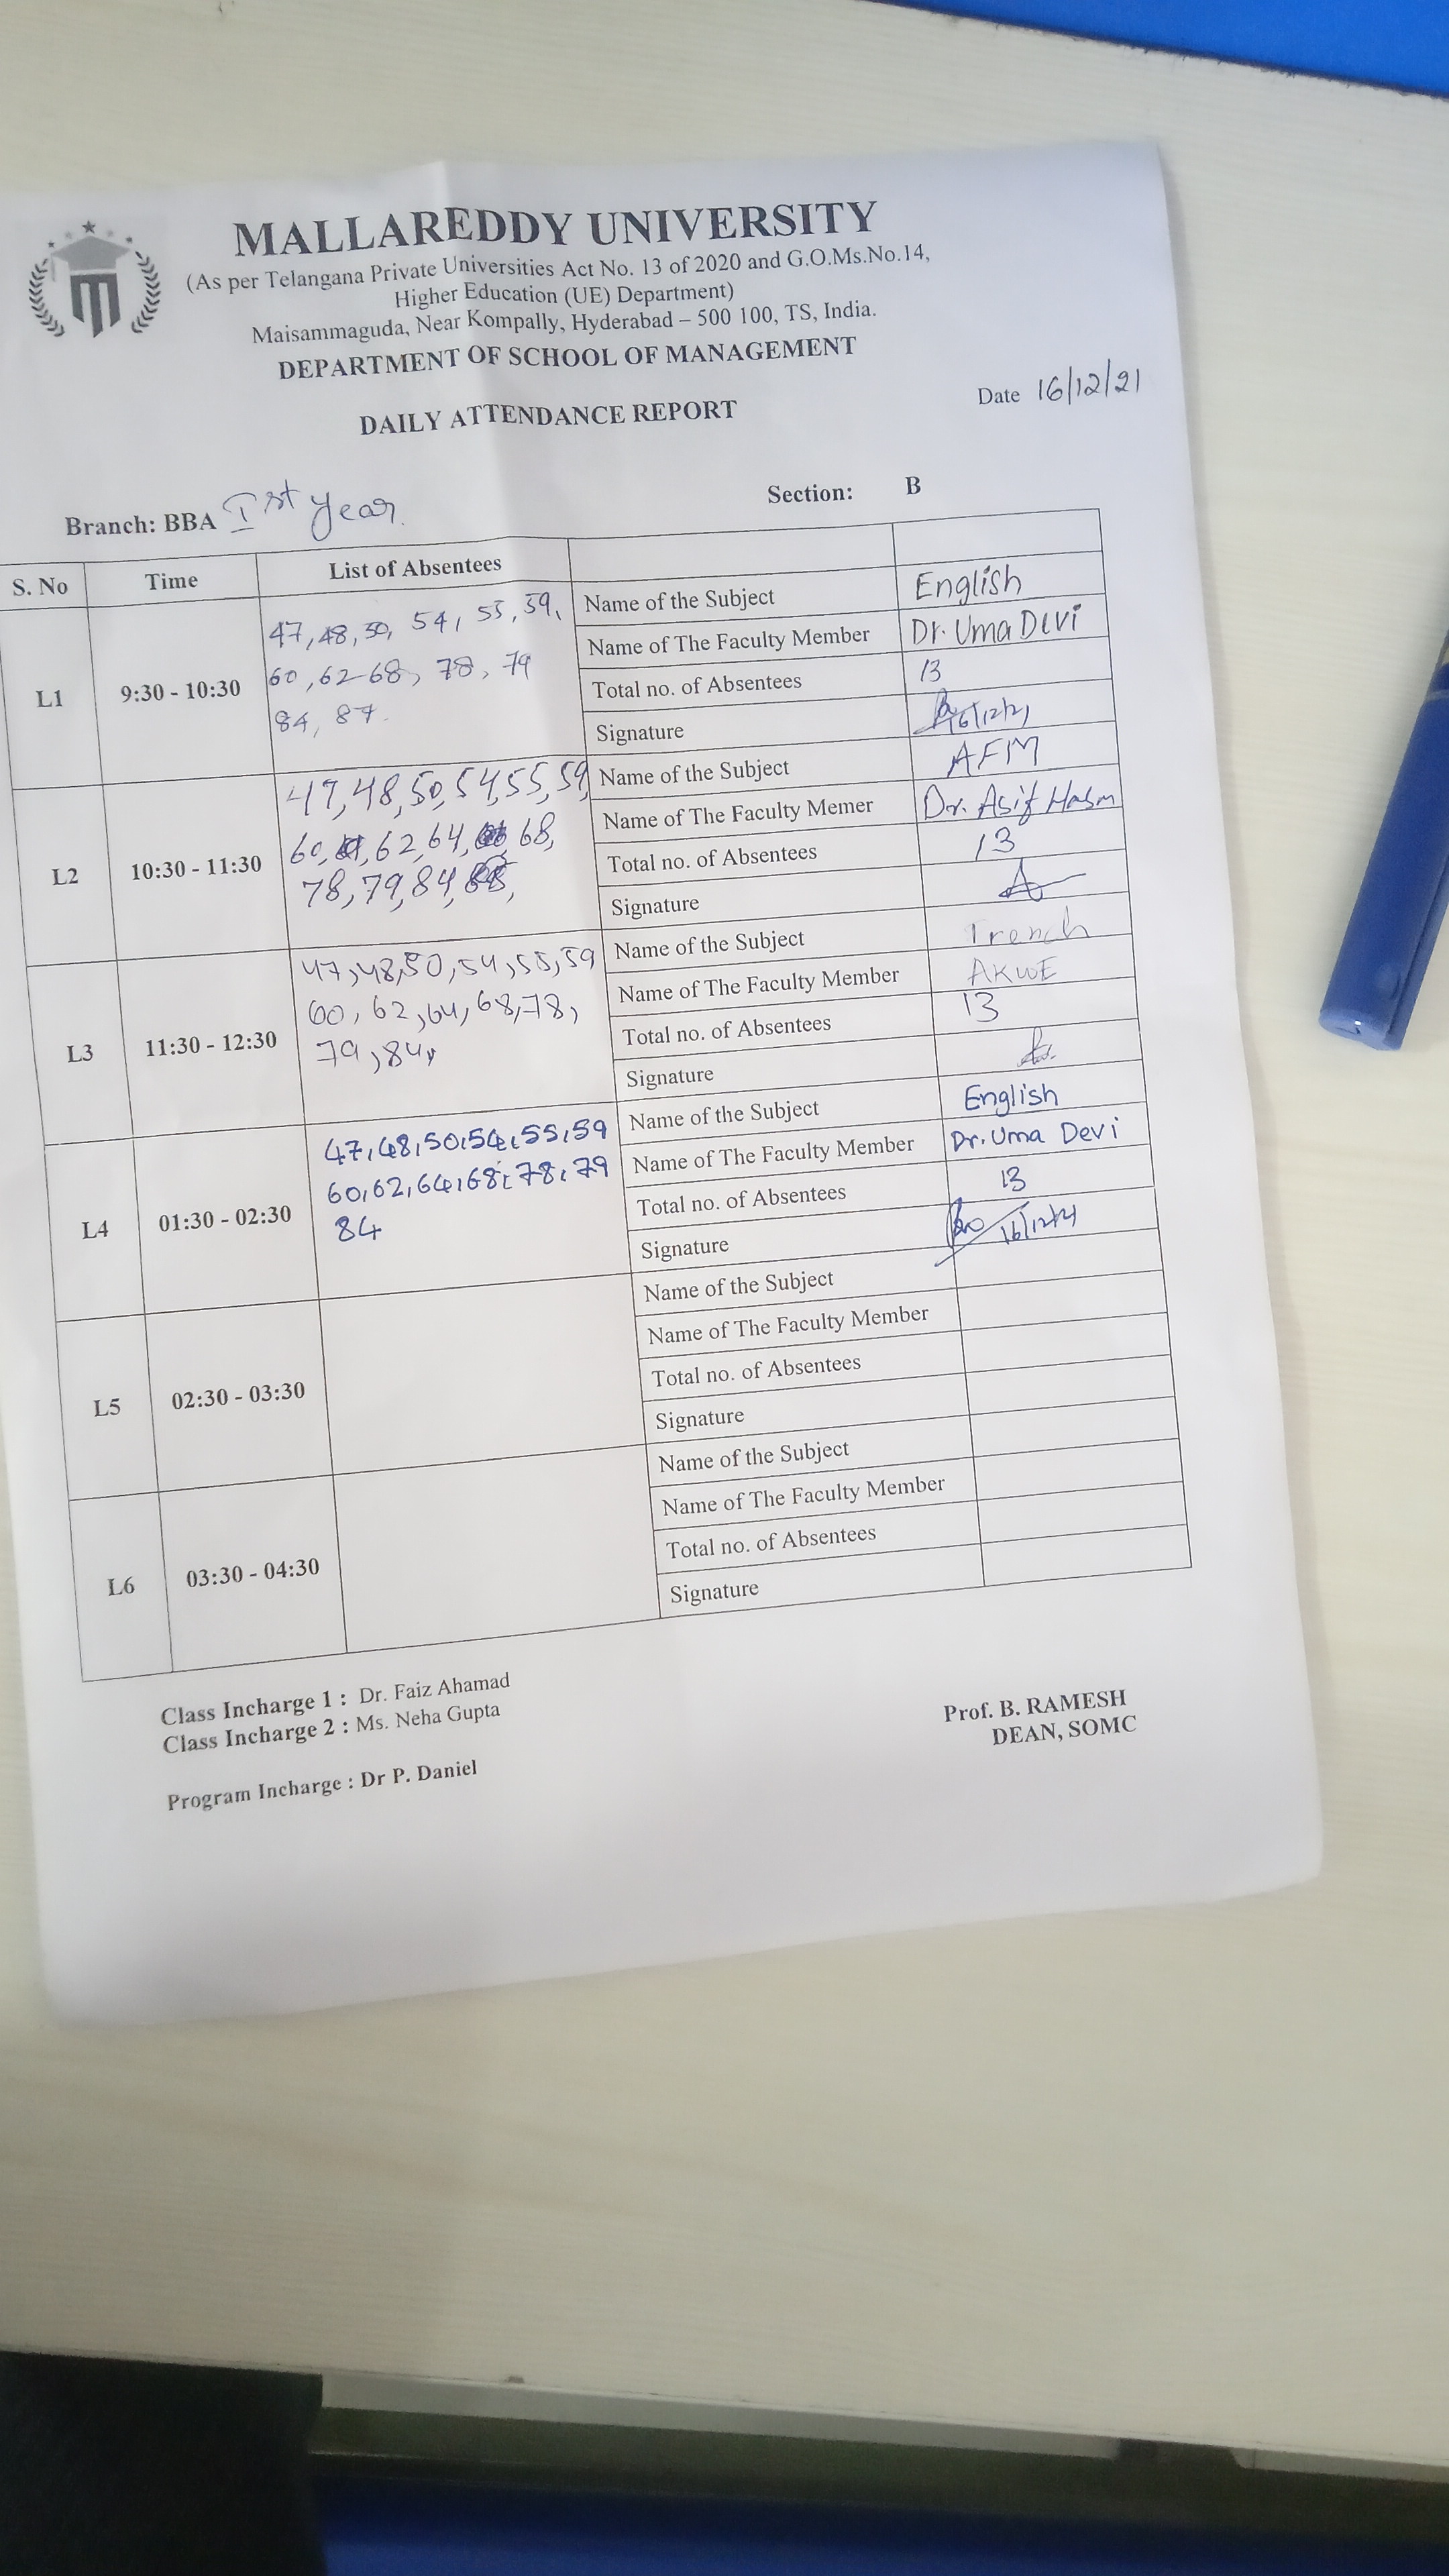 MALLAREDDY UNIVERSITY
(As per Telangana Private Universities Act No. 13 of 2020 and G.O.Ms.No.14,
Higher Education (UE) Department)
Maisammaguda, Near Kompally, Hyderabad – 500 100, TS, India.
DEPARTMENT OF SCHOOL OF MANAGEMENT
Date 16/12/21
DAILY ATTENDANCE REPORT
Branch: BBA Ist Year. Section: B
S. No Time List of Absentees
L1 9:30 - 10:30
47, 48, 50, 54, 55, 59,
60, 62 68, 78, 79
84, 87.
Name of the Subject English
Name of The Faculty Member Dr. Uma Devi
Total no. of Absentees 13
Signature 16/12/21
L2 10:30 - 11:30
47, 48, 50, 54, 55, 59,
60, 62, 64, 68,
78, 79, 84,
Name of the Subject AFM
Name of The Faculty Memer Dr. Asif Hasn
Total no. of Absentees 13
Signature
L3 11:30 - 12:30
47, 48, 50, 54, 55, 59
60, 62, 64, 68, 78,
79, 84,
Name of the Subject French
Name of The Faculty Member
Total no. of Absentees 13
Signature
L4 01:30 - 02:30
47, 48, 50, 54, 55, 59
60, 62, 64, 68, 78, 79
84
Name of the Subject English
Name of The Faculty Member Dr. Uma Devi
Total no. of Absentees 13
Signature 16/12/21
L5 02:30 - 03:30
Name of the Subject
Name of The Faculty Member
Total no. of Absentees
Signature
L6 03:30 - 04:30
Name of the Subject
Name of The Faculty Member
Total no. of Absentees
Signature
Class Incharge 1 : Dr. Faiz Ahamad
Class Incharge 2 : Ms. Neha Gupta
Prof. B. RAMESH
DEAN, SOMC
Program Incharge : Dr P. Daniel